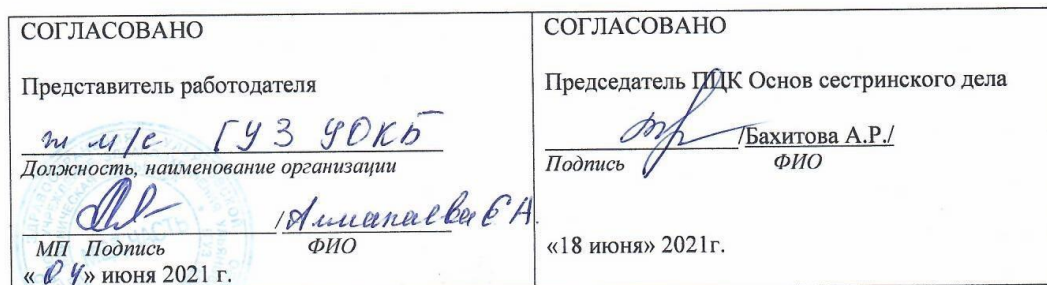 СОГЛАСОВАНО
Представитель работодателя
м/с ГУЗ УОКБ
Должность, наименование организации
/
МП Подпись ФИО
«04» июня 2021 г.
СОГЛАСОВАНО
Председатель ПЦК Основ сестринского дела
/Бахитова А.Р./
Подпись ФИО
«18 июня» 2021г.